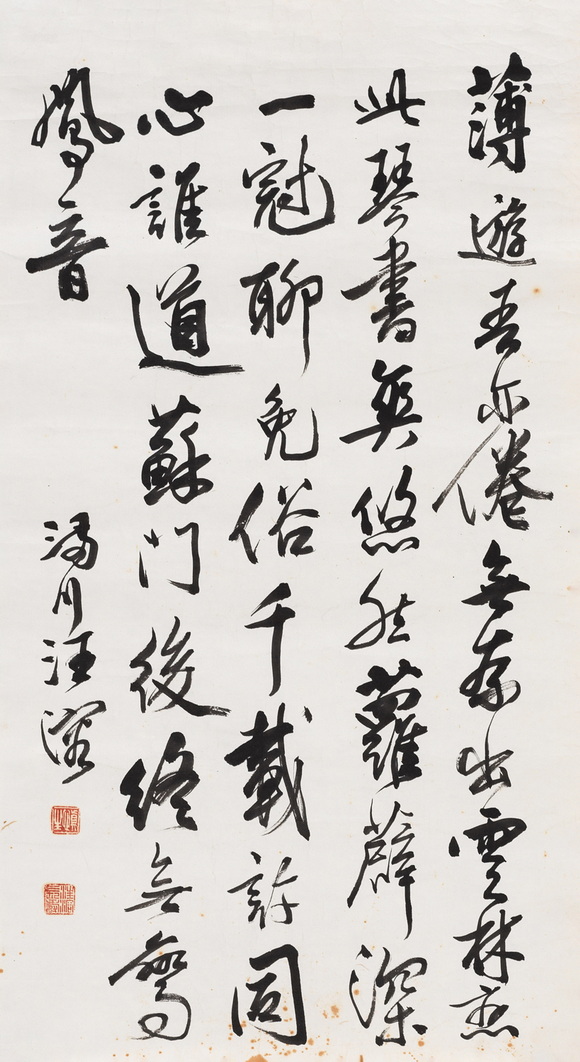 薄遊吾亦倦無奈出雲林恋
此琴書奥悠然蘿薜深
一冠聊免俗千載許同
心誰道蘇門後終無鸞
鳳音
潏川汪溶
慎生